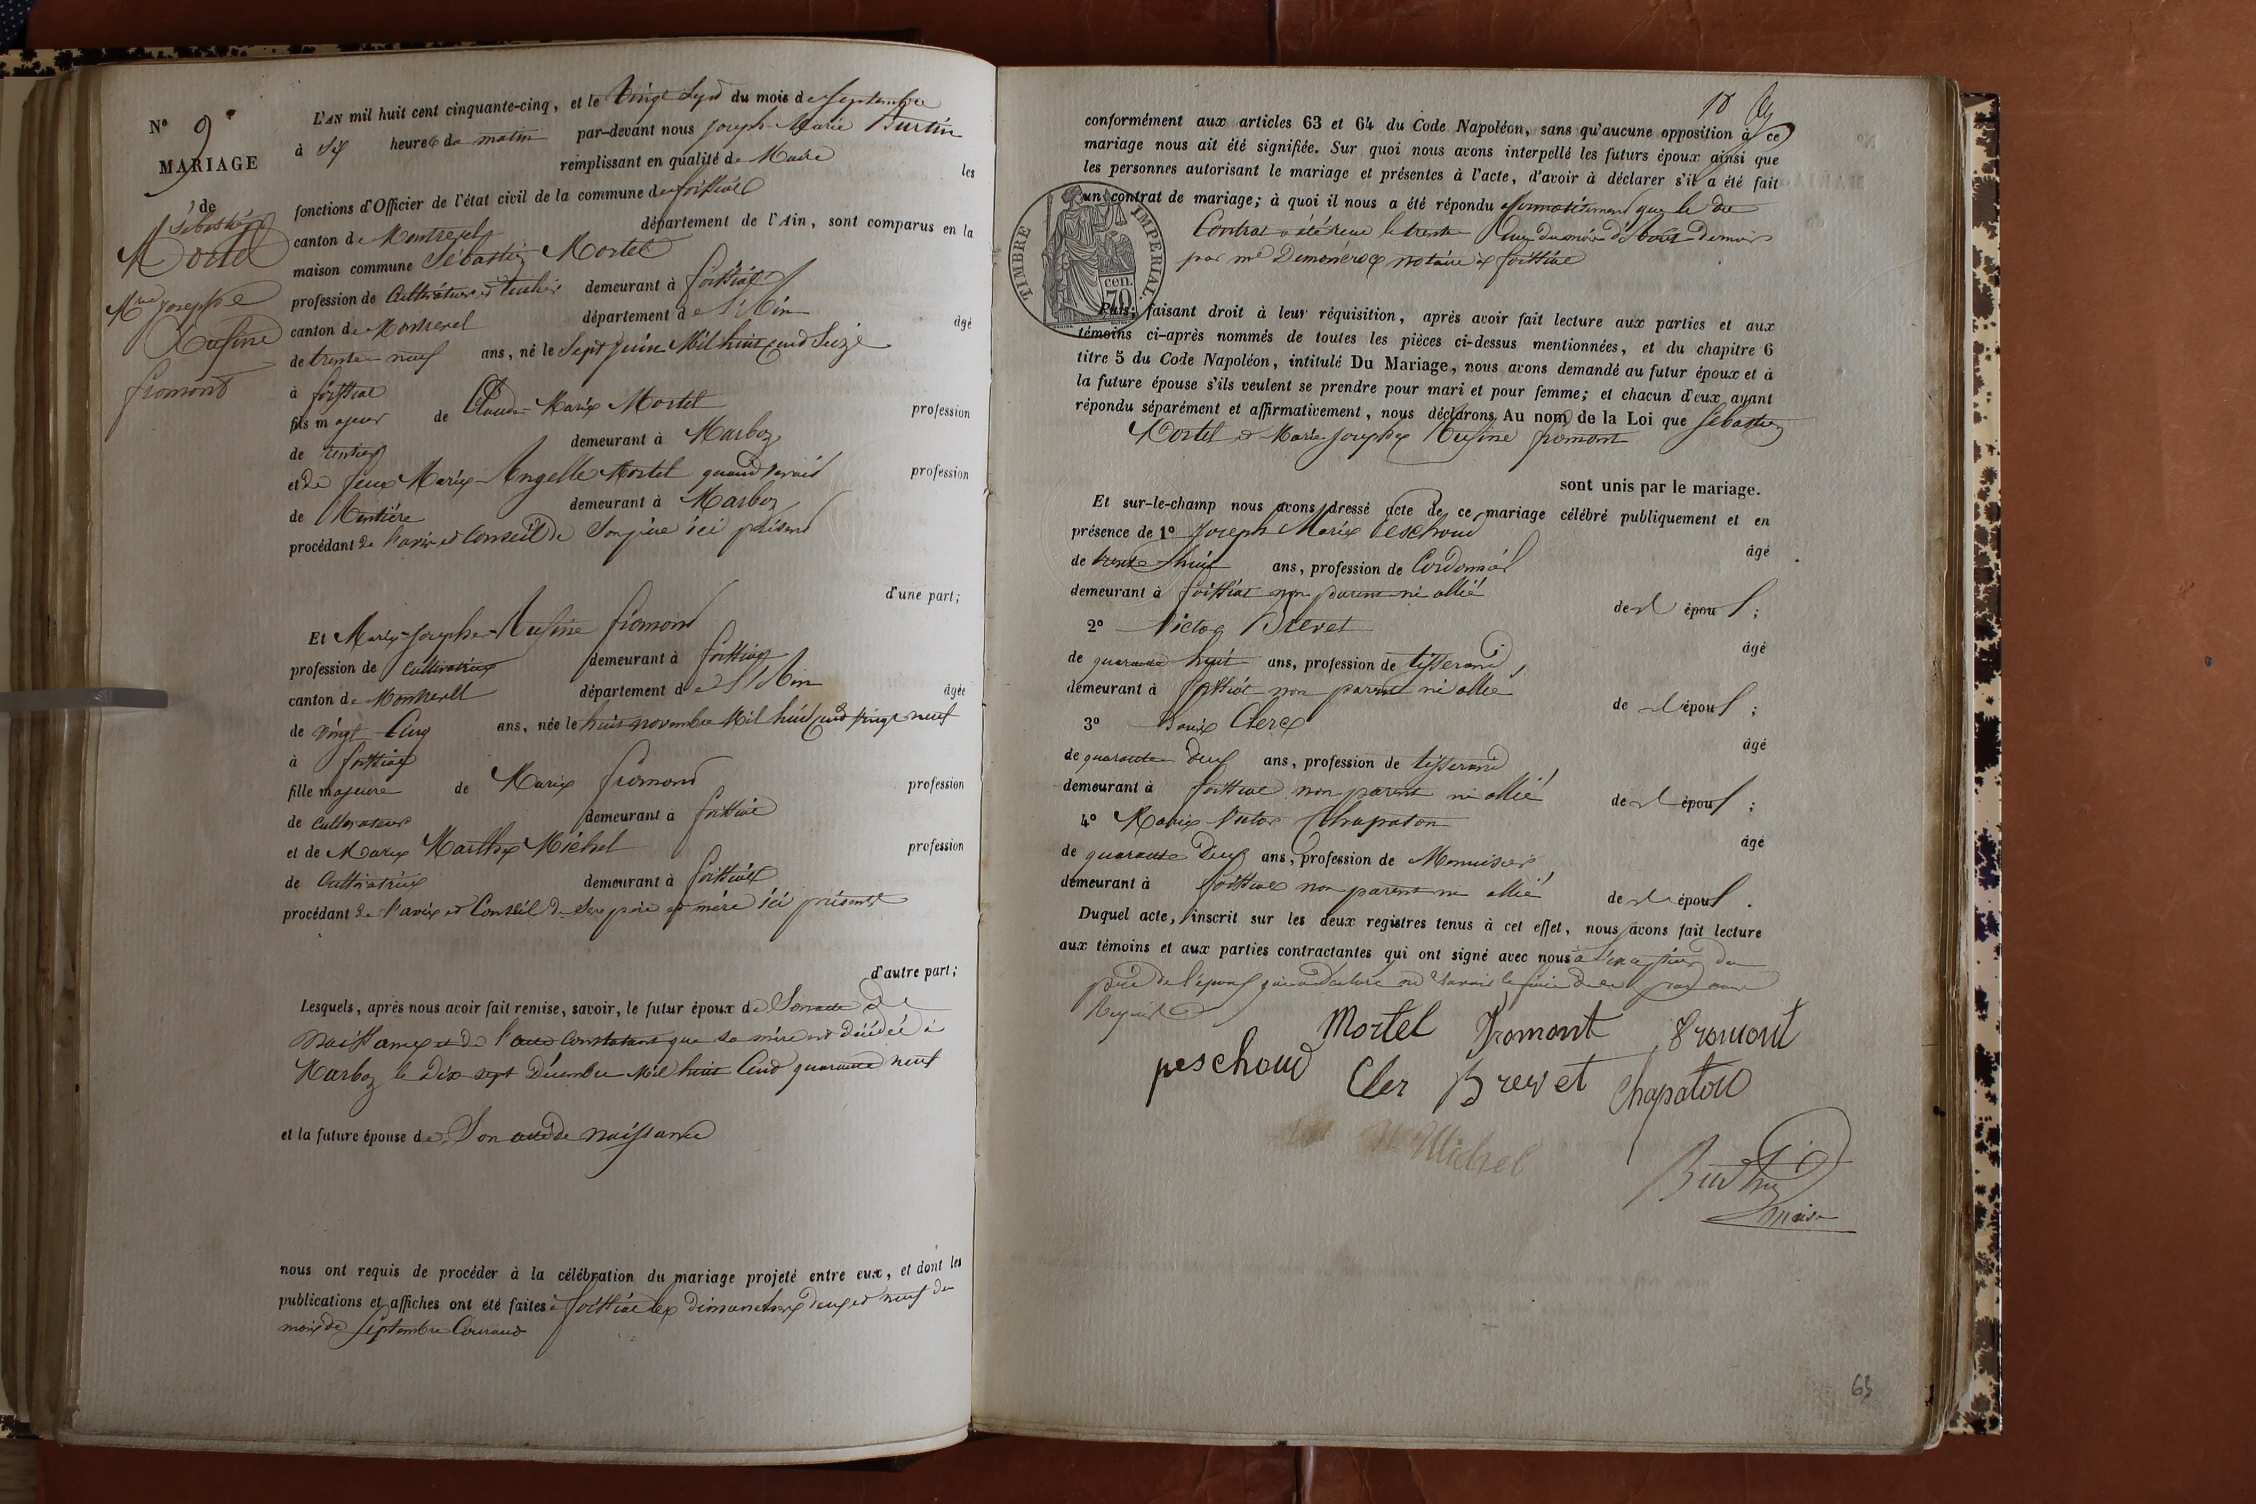 N° 9
MARIAGE
de
Sébastien
Mortel
&
Mie Josephe
Rufine
fromont
L'AN mil huit cent cinquante-cinq, et le vingt sept du mois de septembre
à six heures du matin par-devant nous Joseph Marie Burtin
remplissant en qualité de Maire les
fonctions d'Officier de l'état civil de la commune de foissiat
canton de Montrevel département de l'Ain, sont comparus en la
maison commune Sébastien Mortel
profession de Cultivateur et demeurant à foissiat
canton de Montrevel département de l'Ain âgé
de trente neuf ans, né le Sept juin Mil huit cend Seize
à foissiat
fils majeur de Claude Marie Mortel profession
de rentier demeurant à Marboz
et de feue Marie Angelle Mortel quand vivait profession
de Rentière demeurant à Marboz
procédant de l'avis et Conseil de Son père ici présent
d'une part;
Et Marie-Josephe-Rufine fromond
profession de cultivatrice demeurant à foissiat
canton de Montrevel département de l'Ain âgée
de vingt Cinq ans, née le huit novembre Mil huit cend vingt neuf
à foissiat
fille majeure de Marie fromond profession
de cultivateur demeurant à foissiat
et de Marie Marthe Michel profession
de Cultivatrice demeurant à foissiat
procédant de l'avis et Conseil de Ses père et mère ici présents
d'autre part;
Lesquels, après nous avoir fait remise, savoir, le futur époux de Son acte de
naissance et de l'acte constatant que sa mère est décédée à
Marboz le dix sept Décembre Mil huit Cend quarante neuf
et la future épouse de Son acte de naissance
nous ont requis de procéder à la célébration du mariage projeté entre eux, et dont les
publications et affiches ont été faites à foissiat les dimanches deux et neuf du
mois de Septembre Courand
18
conformément aux articles 63 et 64 du Code Napoléon, sans qu'aucune opposition à ce
mariage nous ait été signifiée. Sur quoi nous avons interpellé les futurs époux ainsi que
les personnes autorisant le mariage et présentes à l'acte, d'avoir à déclarer s'il a été fait
un contrat de mariage; à quoi il nous a été répondu affirmativement que le dit
Contrat a été reçu le trente un du mois d'Août dernier
par me notaire à foissiat
TIMBRE IMPERIAL
cen.
70
Puis, faisant droit à leur réquisition, après avoir fait lecture aux parties et aux
témoins ci-après nommés de toutes les pièces ci-dessus mentionnées, et du chapitre 6
titre 5 du Code Napoléon, intitulé Du Mariage, nous avons demandé au futur époux et à
la future épouse s'ils veulent se prendre pour mari et pour femme; et chacun d'eux ayant
répondu séparément et affirmativement, nous déclarons Au nom de la Loi que Sébastien
Mortel et Marie Josephe Rufine fromont
sont unis par le mariage.
Et sur-le-champ nous avons dressé acte de ce mariage célébré publiquement et en
présence de 1° Joseph Marie Peschoud âgé
de trente huit ans, profession de Cordonnier
demeurant à foissiat non parent ni allié de l'époux;
2° Victor Brevet âgé
de quarante huit ans, profession de tisserand,
demeurant à foissiat non parent ni allié de l'époux;
3° Louis Clerc âgé
de quarante deux ans, profession de tisserand
demeurant à foissiat non parent ni allié de l'époux;
4° Marie Victor Chapaton âgé
de quarante Deux ans, profession de Menuisier
demeurant à foissiat non parent ni allié de l'époux.
Duquel acte, inscrit sur les deux registres tenus à cet effet, nous avons fait lecture
aux témoins et aux parties contractantes qui ont signé avec nous à l'exception du
père de l'époux qui a déclaré ne savoir le faire de ce par nous
Requis
Mortel Fromont Fromont
peschoud Cler Brevet Chapaton
Michel
Burtin
maire
63